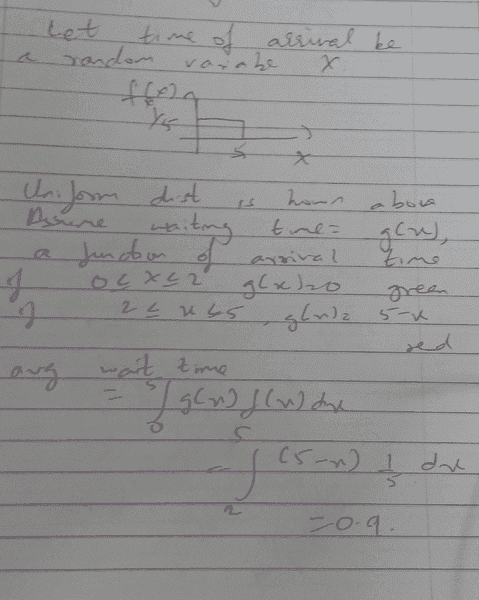 Let time of arrival be
a random variable X
f(x)
1/5
5
x
Uniform dist is shown above
Assume waiting time = g(x),
a function of arrival time
if 0 ≤ x ≤ 2 g(x)=0 green
if 2 ≤ x ≤ 5, g(x)= 5-x
red
avg wait time
= ∫₀⁵ g(x) f(x) dx
= ∫₂⁵ (5-x) 1/5 dx
= 0.9.